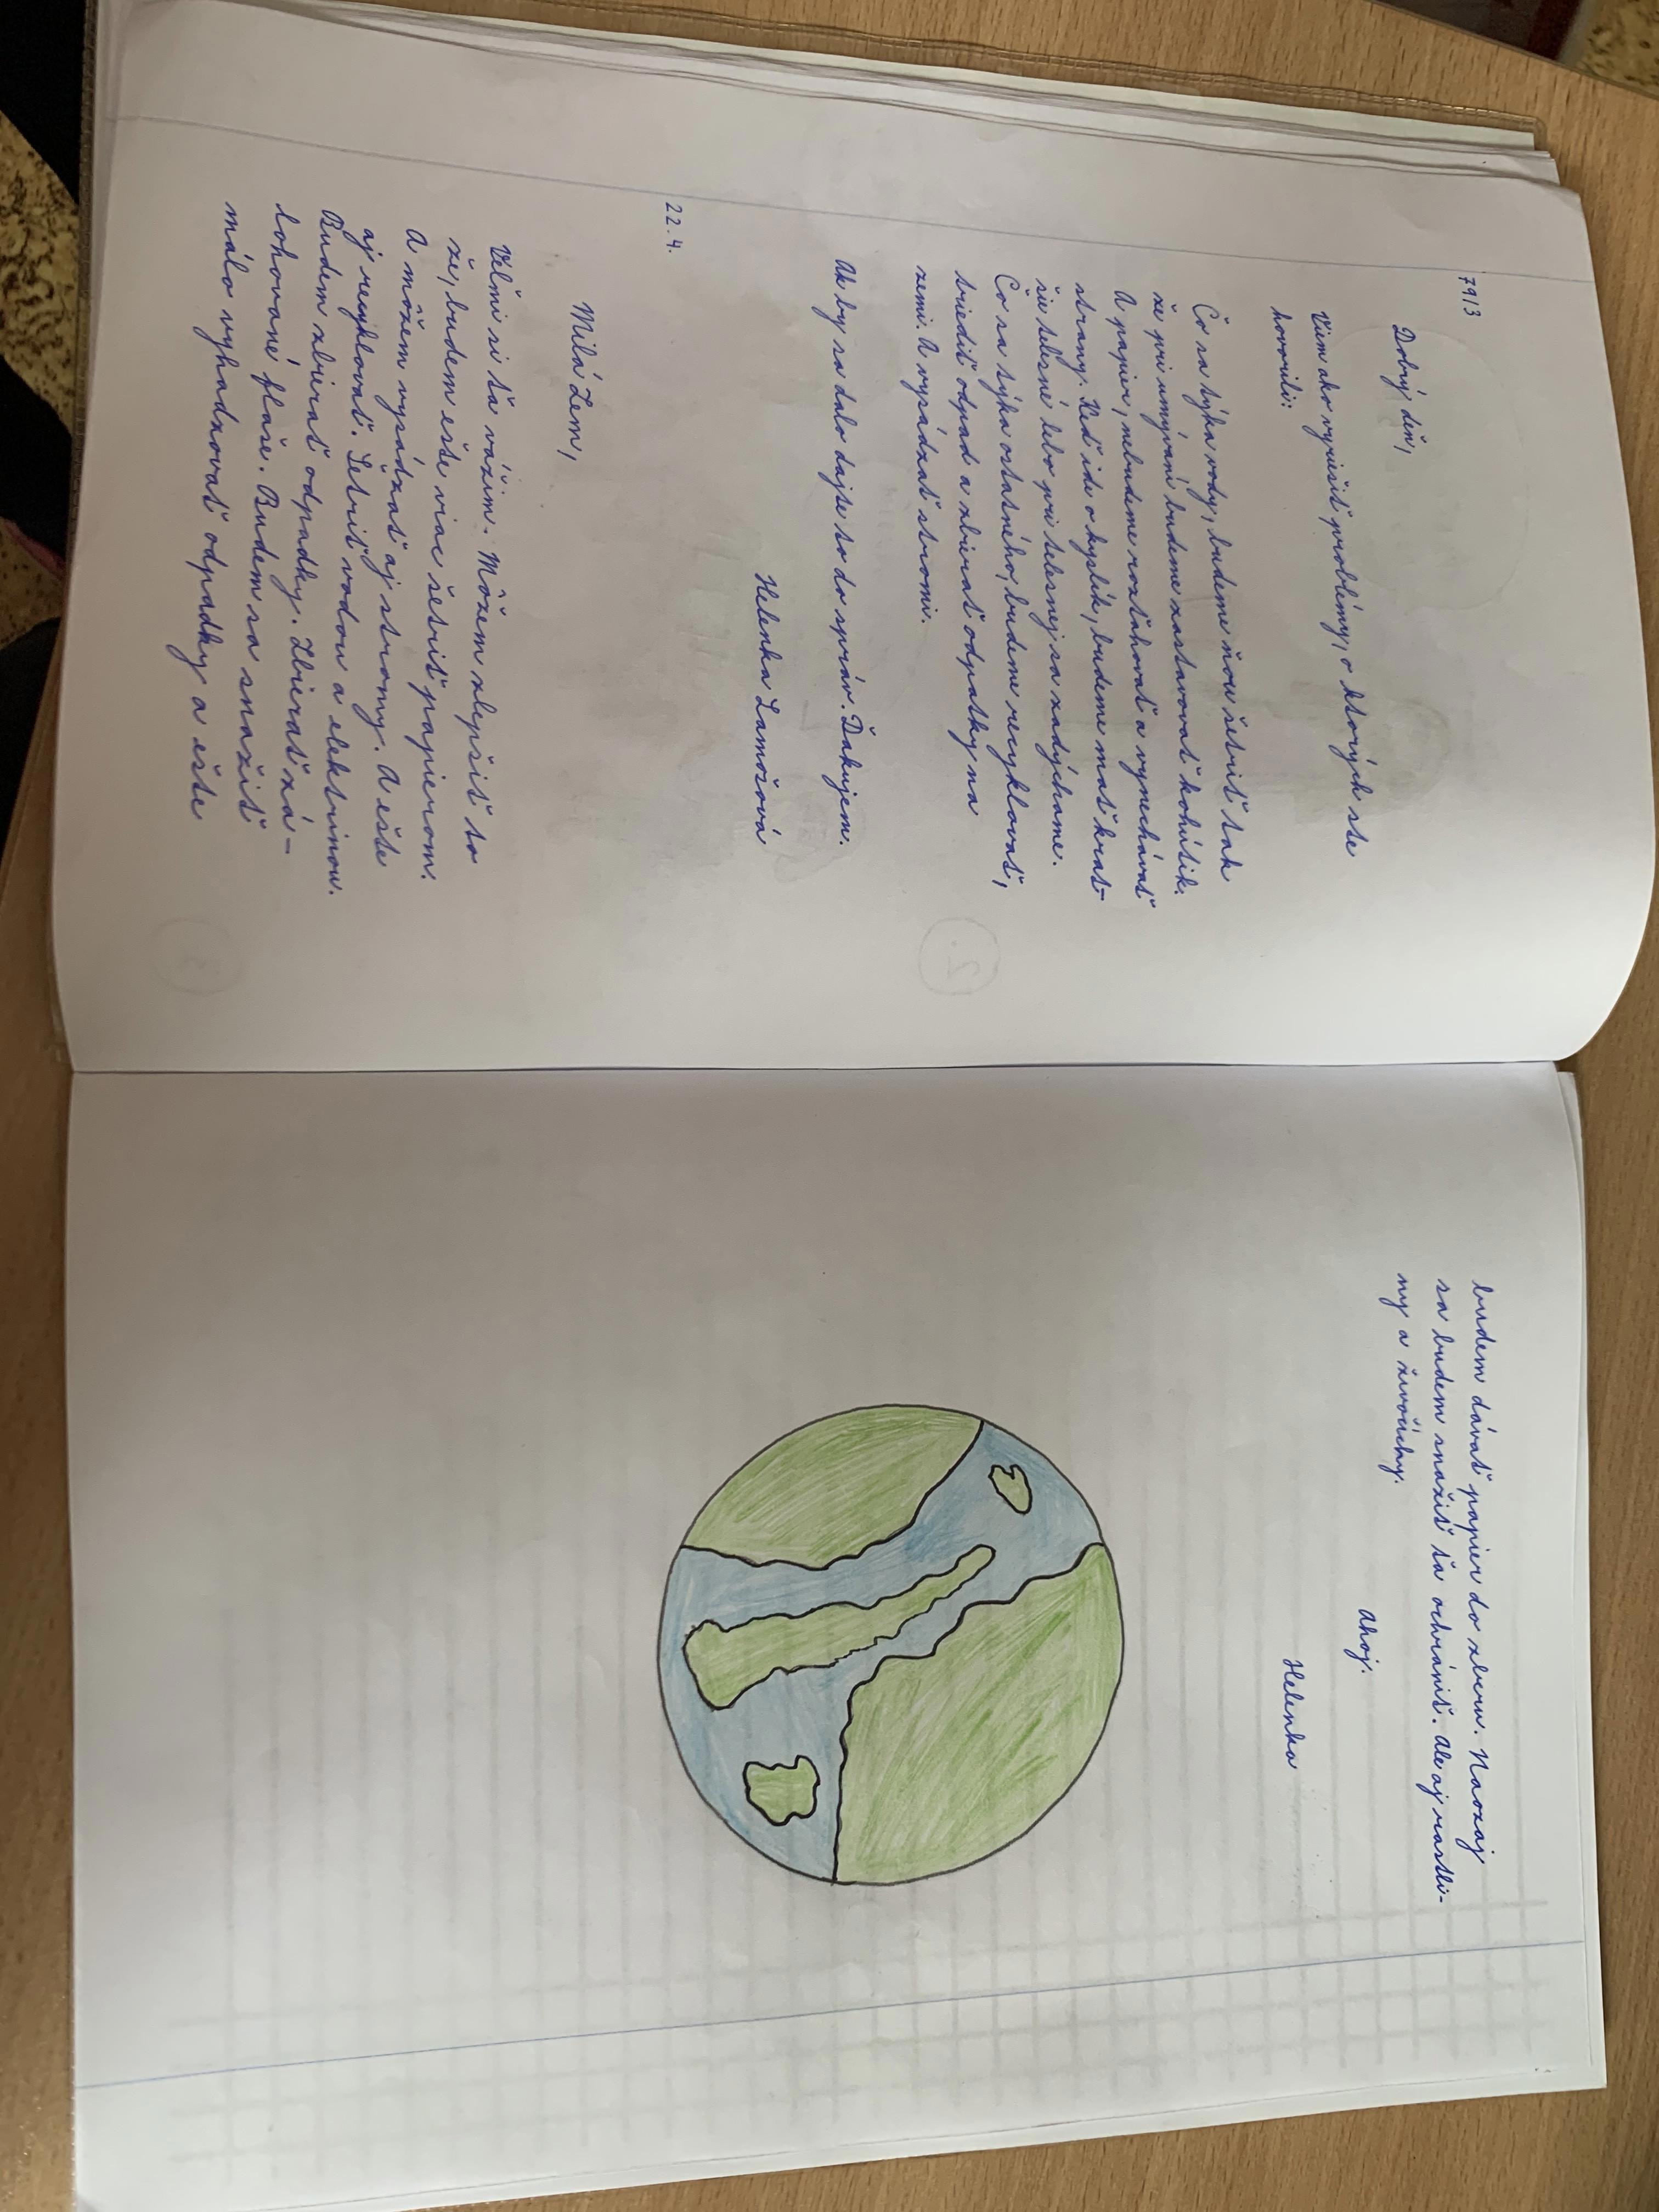 79/3
Dobrý deň,
Viem ako vyriešiť problémy, o ktorých ste
hovorili:
Čo sa týka vody, budeme ňou šetriť tak
že pri umývaní budeme zastavovať kohútik.
A papier, nebudeme rozťahovať a vynechávať
strany. Keď ide o kyslík, budeme mať krat-
šie telesné lebo pri telesnej sa zadýchame.
Čo sa týka ostatného, budeme recyklovať,
triediť odpad a zbierať odpatky na
zemi. A vypádzať stromi.
Ak by sa dalo dajte to do správ. Ďakujem.
Helenka Lamošová
22.4.
Milá Zem,
Veľmi si ťa vážim. Môžem zlepšiť to
že, budem ešte viac šetriť papierom.
A môžem vysádzať aj stromy. A ešte
aj recyklovať. Šetriť vodou a elektrinou.
Budem zbierať odpadky. Zbierať zá-
lohované fľaše. Budem sa snažiť
málo vyhadzovať odpadky a ešte
budem dávať papier do zberu. Naozaj
sa budem snažiť ťa ochrániť. Ale aj rastli-
ny a živočíchy.
Ahoj.
Helenka